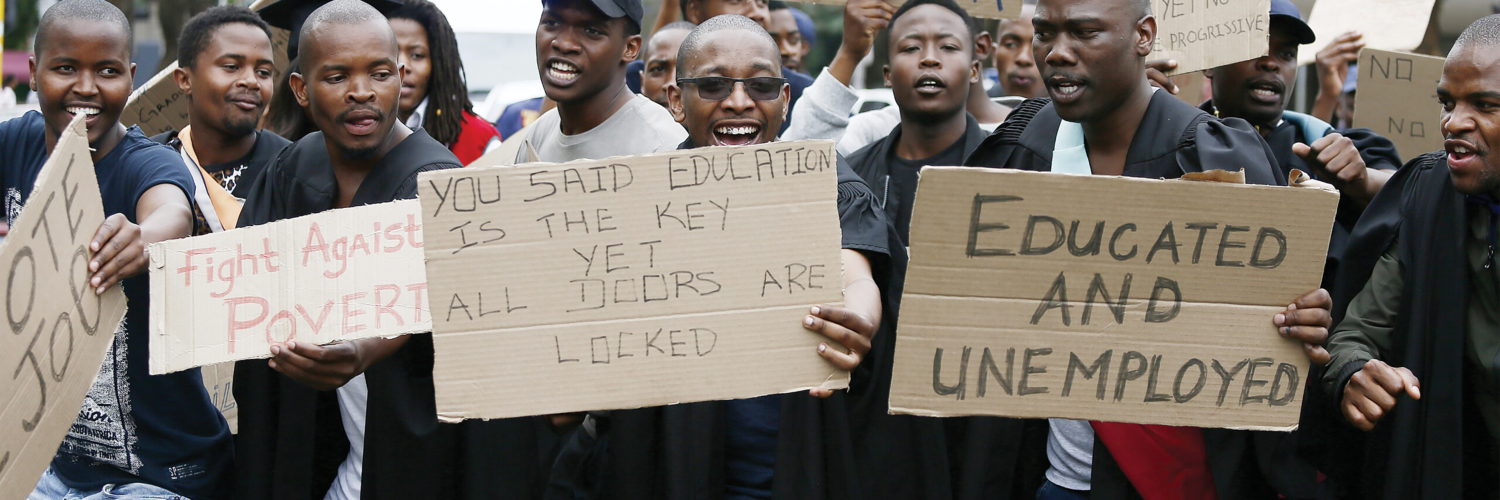 OTE
JOB
Fight Agaist
POVERT
YOU SAID EDUCATION
IS THE KEY
YET
ALL DOORS ARE
LOCKED
EDUCATED
AND
UNEMPLOYED
YET NO
PROGRESSIVE
NO
NO